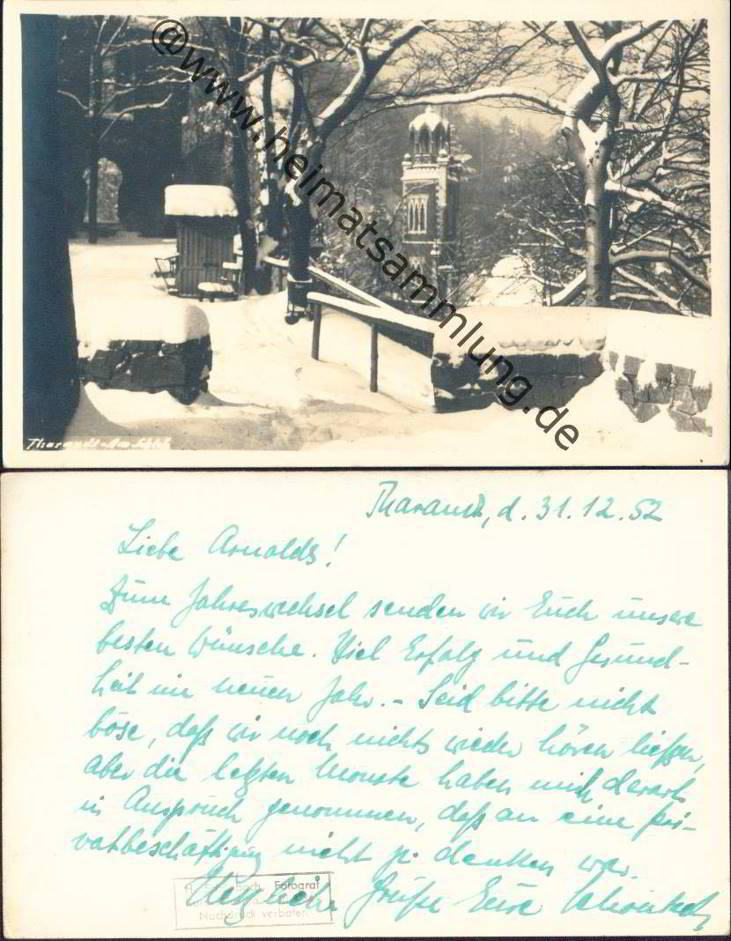 @www.heimatsammlung.de
Tharandt-Am Schloß
Tharandt, d. 31.12.52
Liebe Arnolds!
Zum Jahreswechsel senden wir Euch unsere
besten Wünsche. Viel Erfolg und Gesund-
heit im neuen Jahr. - Seid bitte nicht
böse, daß wir noch nichts wieder hören ließen,
aber die letzten Monate haben mich derart
in Anspruch genommen, daß an eine Pri-
vatbeschäftigung nicht z. denken war.
Herzliche Grüße Eure
Fotograf
Nachdruck verboten